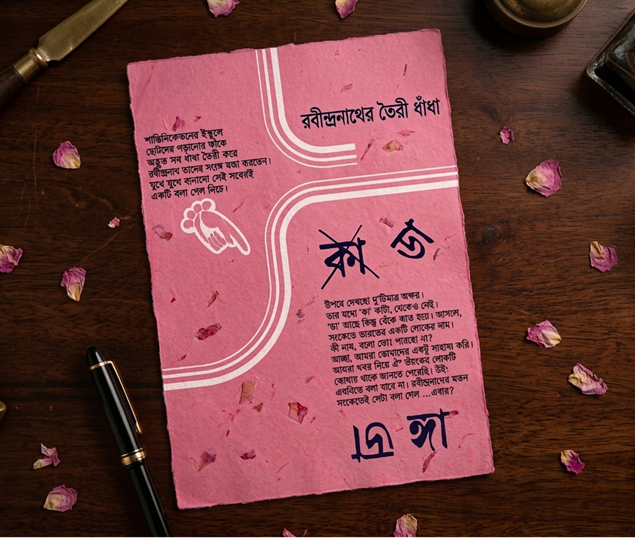 রবীন্দ্রনাথের তৈরী ধাঁধা
শান্তিনিকেতনের ইস্কুলে
ছোটদের পড়ানোর ফাঁকে
অদ্ভুত সব ধাঁধা তৈরী করে
রবীন্দ্রনাথ তাদের সংঙ্গ মজা করতেন।
মুখে মুখে বানানো সেই সবেরই
একটি বলা গেল নিচে।
ক্রা ডা
উপরে দেখছো দু'টিমাত্র অক্ষর।
তার মধ্যে 'কা' কাটা, থেকেও নেই।
'ডা' আছে কিন্তু বেঁকে কাত হয়ে। আসলে,
সংকেতে ভারতের একটি লোকের নাম।
কী নাম, বলো তো। পারছো না?
আচ্ছা, আমরা তোমাদের একটু সাহায্য করি।
আমরা খবর নিয়ে ঐ লোকটি
কোথায় থাকে জানতে পেরেছি। উহুঁ
এমনিতে বলা যাবে না। রবীন্দ্রনাথের মতন
সংকেতেই সেটা বলা গেল ...এবার?
ঙ্গা